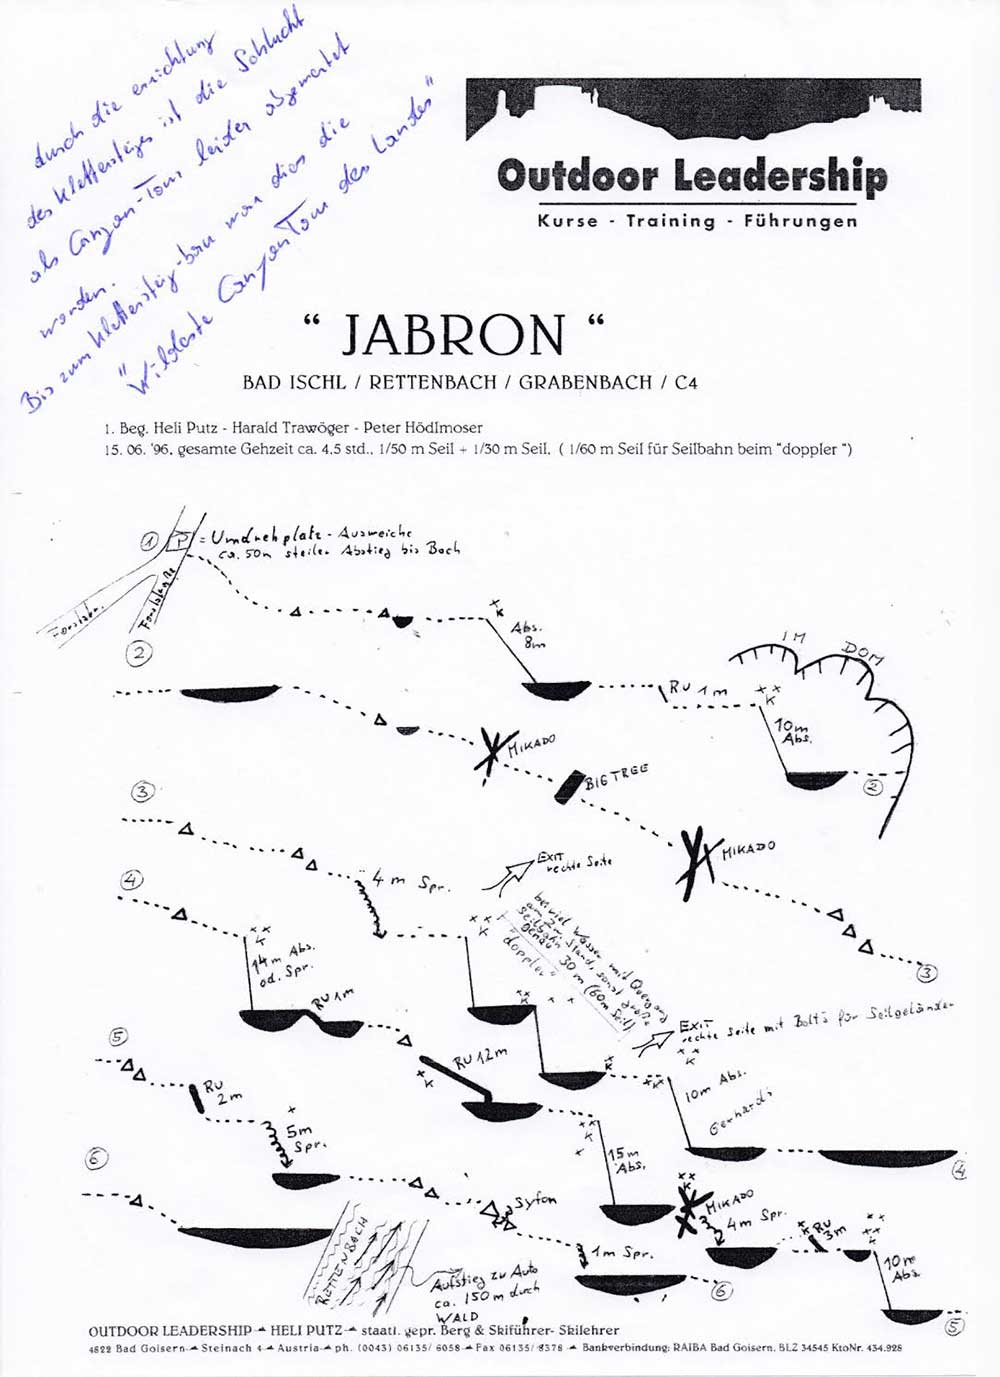 durch die errichtung
des Klettersteiges ist die Schlucht
als Canyon-Tour leider abgewertet
worden.
Bis zum Klettersteig-bau war dies die
"Wildeste CanyonTour des Landes"
Outdoor Leadership
Kurse - Training - Führungen
“ JABRON “
BAD ISCHL / RETTENBACH / GRABENBACH / C4
1. Beg. Heli Putz - Harald Trawöger - Peter Hödlmoser
15. 06. '96, gesamte Gehzeit ca. 4,5 std., 1/50 m Seil + 1/30 m Seil, ( 1/60 m Seil für Seilbahn beim “doppler “)
1 P = Umdrehplatz - Ausweiche
ca. 50m steiler Abstieg bis Bach
Forststr.
Abs.
8m
IM DOM
2
RU 1m
10m
Abs.
2
MIKADO
BIG TREE
MIKADO
3
3
4 m Spr.
EXIT
rechte Seite
4
14m Abs.
od. Spr.
RU 1m
bei viel Wasser mit Quergang
am 2m. Stand, sonst große
Seilbahn
genau 30 m (60m Seil)
"doppler"
EXIT
rechte Seite mit Bolts für Seilgeländer
10m Abs.
Gerhards
4
5
RU
2m
5m
Spr.
RU 12m
15m
Abs.
MIKADO
4m Spr.
RU
3m
10m
Abs.
5
6
Syfon
1m Spr.
6
RETTENBACH
Aufstieg zu Auto
ca. 150m durch
WALD
OUTDOOR LEADERSHIP - HELI PUTZ - staatl. gepr. Berg & Skiführer- Skilehrer
4822 Bad Goisern - Steinach 4 - Austria - ph. (0043) 06135/ 6058 - Fax 06135/ 8378 - Bankverbindung: RAIBA Bad Goisern, BLZ 34545 KtoNr. 434.928